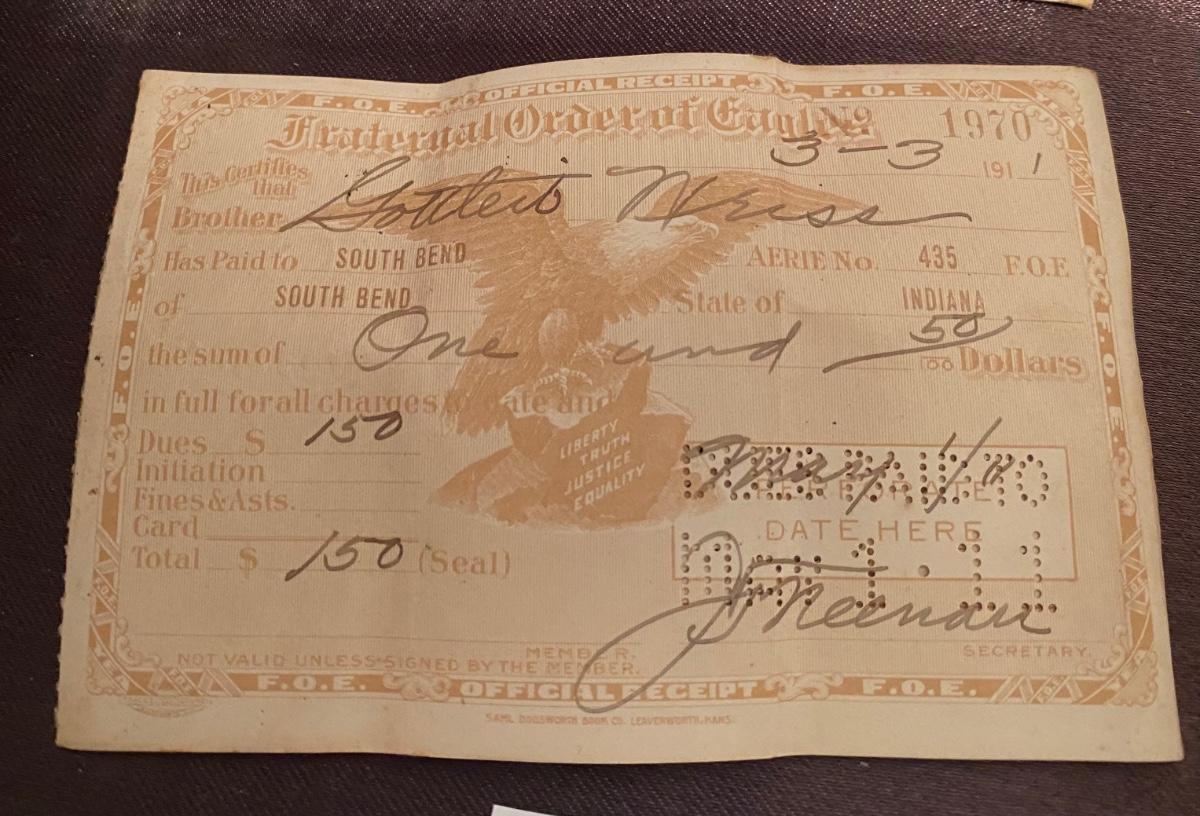 F.O.E. OFFICIAL RECEIPT F.O.E.
Fraternal Order of Eagles No 1970
3-3 1911
This Certifies that
Brother Gottleib Weiss
Has Paid to SOUTH BEND AERIE No. 435 F.O.E
of SOUTH BEND State of INDIANA
the sum of One and 50/00 Dollars
in full for all charges to date and
LIBERTY
TRUTH
JUSTICE
EQUALITY
Dues $ 150
Initiation
Fines & Asts.
Card
Total $ 150 (Seal)
May 1/11
DUES PAID TO
DATE HERE
May 1. 11
J Neenan
MEMBER. SECRETARY.
NOT VALID UNLESS SIGNED BY THE MEMBER.
F.O.E. OFFICIAL RECEIPT F.O.E.
SAML DODSWORTH BOOK CO. LEAVENWORTH, KANS.
F.O.E.
F.O.E.